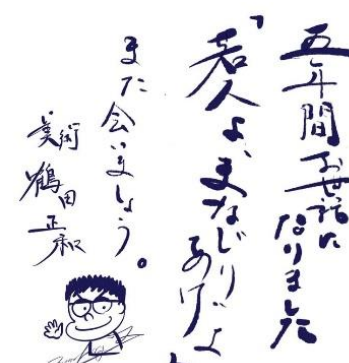 五年間お世話に
なりました
「若人よ、まなじりを
あげよ
また会いましょう。
美術
鶴田正和